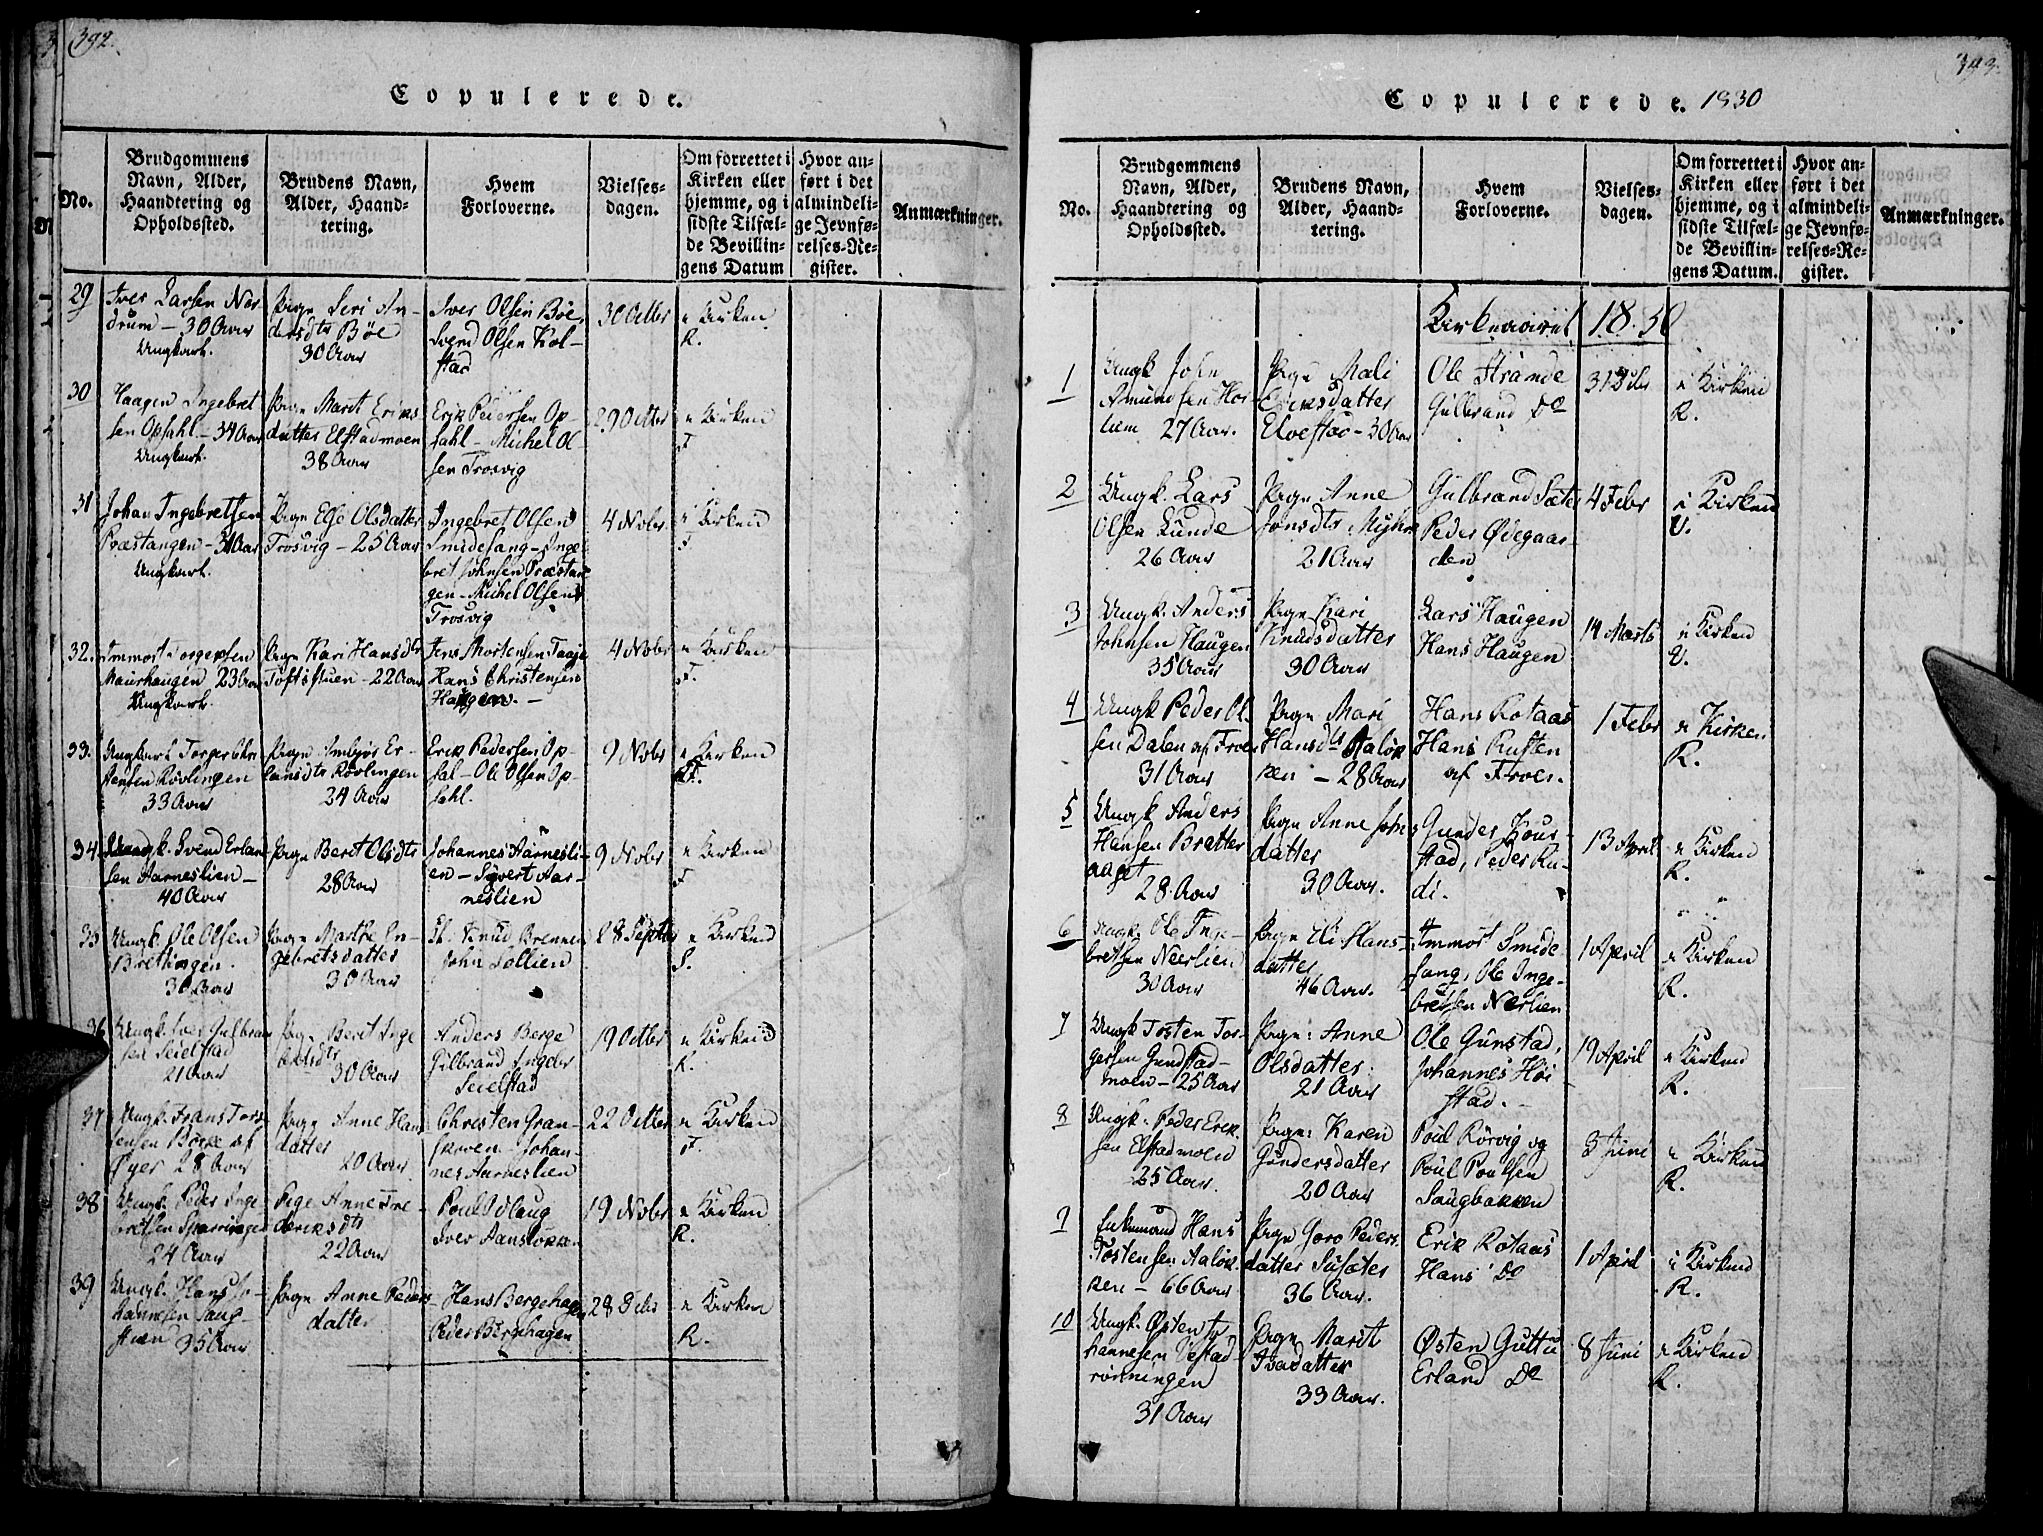 392.
Copulerede.
No.
Brudgommens Navn, Alder, Haandtering og Opholdssted.
Brudens Navn, Alder, Haandtering.
Hvem Forloverne.
Vielsesdagen.
Om forrettet i Kirken eller hjemme, og i sidste Tilfælde Bevillingens Datum
Hvor anført i det almindelige Jevnførelses-Register.
Anmærkninger.
29
Iver Larsen Nordrum – 30 Aar Ungkarl.
Pige Seri Andersdtr Böe 30 Aar
Iver Olsen Böe, Svend Olsen Kolstad
30 Octbr
i Kirken R.
30
Haagen Ingebretsen Opsahl – 34 Aar Ungkarl.
Pige Marit Eriksdatter Elstadmoen 38 Aar
Erik Pedersen Opsahl – Michel Olsen Trosvig
29 Octbr
i Kirken F
31
Johan Ingebretsen Præstangen – 31 Aar Ungkarl.
Pige Else Olsdatter Trosvig – 25 Aar
Ingebret Olsen Smidesang – Ingebret Johnsen Præstangen – Michel Olsen Trosvig
4 Nobr
i Kirken F
32.
Maurhaugen 23 Aar Ungkarl.
Pige Kari Hansdtr Toftstuen – 22 Aar
Jens Mortensen Hans Christensen Haugen. –
4 Nobr
i Kirken F.
33.
Ungkarl Torger Rövlingen 33 Aar
Pige Imbjör Erlansdtr Rövlingen 24 Aar
Erik Pedersen Opsal – Ole Olsen Opsahl.
9 Nobr
i Kirken F.
34
Ungk. Svend Erlansen Aarneslien – 40 Aar
Pige Beret Olsdtr 28 Aar
Johannes Aarneslien – Sÿvert Aarneslien
9 Nobr
i Kirken F
35
Ungk. Ole Olsen 30 Aar
Pige Marthe Engebretsdatter 30 Aar
Knud Brennen John Lollien
28 Septr
i Kirken S.
36
Ungk. Iver Gulbransen Seielstad 21 Aar
Pige Beret 30 Aar
Anders Berge Gulbrand Seielstad
19 Octbr
i Kirken R.
37
Ungk. Frans af Öyer 28 Aar
Pige Anne Hansdatter 20 Aar
Christen Granskoven – Johannes Aarneslien
22 Octbr
i Kirken F.
38
Ungk. Peder Ingebretsen 24 Aar
Pige Anne Frederiksdtr 22 Aar
Poul Odlaug Iver
19 Nobr
i Kirken R.
39
Ungk. Hans Johannesen 35 Aar
Pige Anne Pedersdatter
Hans Bergehagen Peder Bergehagen
28
i Kirken R.
393.
Copulerede. 1830
No.
Brudgommens Navn, Alder, Haandtering og Opholdssted.
Brudens Navn, Alder, Haandtering.
Hvem Forloverne.
Vielsesdagen.
Om forrettet i Kirken eller hjemme, og i sidste Tilfælde Bevillingens Datum.
Hvor anført i det almindelige Jevnførelses-Register.
Anmærkninger.
Kirkeaaret 1830
1
Ungk John Amundsen 27 Aar.
Pige Mali Eriksdatter Elvestad – 30 Aar
Ole Strande Gulbrand Do
31
i Kirken R.
2
Ungk. Lars Olsen Lunde 26 Aar
Pige Anne Jonsdtr 21 Aar
Gulbrand Sæter Peder Ödegaarden
4 Febr
i Kirken V.
3
Ungk. Anders Johnsen Haugen 35 Aar
Pige Kari Knudsdatter 30 Aar
Lars Haugen Hans Haugen
14 Marts
i Kirken V.
4
Ungk Peder Olsen Dalen af Froen 31 Aar
Pige Mari Hansdtr Aalökken – 28 Aar
Hans Rotaas Hans Rusten af Froen.
1 Febr
i Kirken R.
5
Ungk Anders Hansen Bratteraget 28 Aar
Pige Anne Johnsdatter 30 Aar.
Gunder Kourstad, Peder Rudi.
13 April
i Kirken R.
6
Ungk. Ole Ingebretsen Neerlien 30 Aar
Pige Eli Hansdatter 46 Aar.
Immort Smidesang, Ole Ingebretsen Nerlien
1 April
i Kirken R.
7
Ungk Tosten Torgersen Gunstadmoen – 25 Aar
Pige: Anne Olsdatter 21 Aar
Ole Gunstad, Johannes Höistad. –
19 April
i Kirken R.
8
Ungk. Peder Eriksen Elstadmoen 25 Aar.
Pige: Karen Gundersdatter 20 Aar
Poul Rörvig og Poul Poulsen Saugbakken
3 Juni
i Kirken R.
9
Enkemand Hans Tostensen Aalökken – 66 Aar
Pige Goro Pedersdatter 36 Aar.
Erik Rotaas Hans Do
1 April
i Kirken R.
10
Ungk. Östen Johannesen 31 Aar
Pige Marit Ivarsdatter 33 Aar.
Östen Guttu Erland Do
8 Juni
i Kirken R.